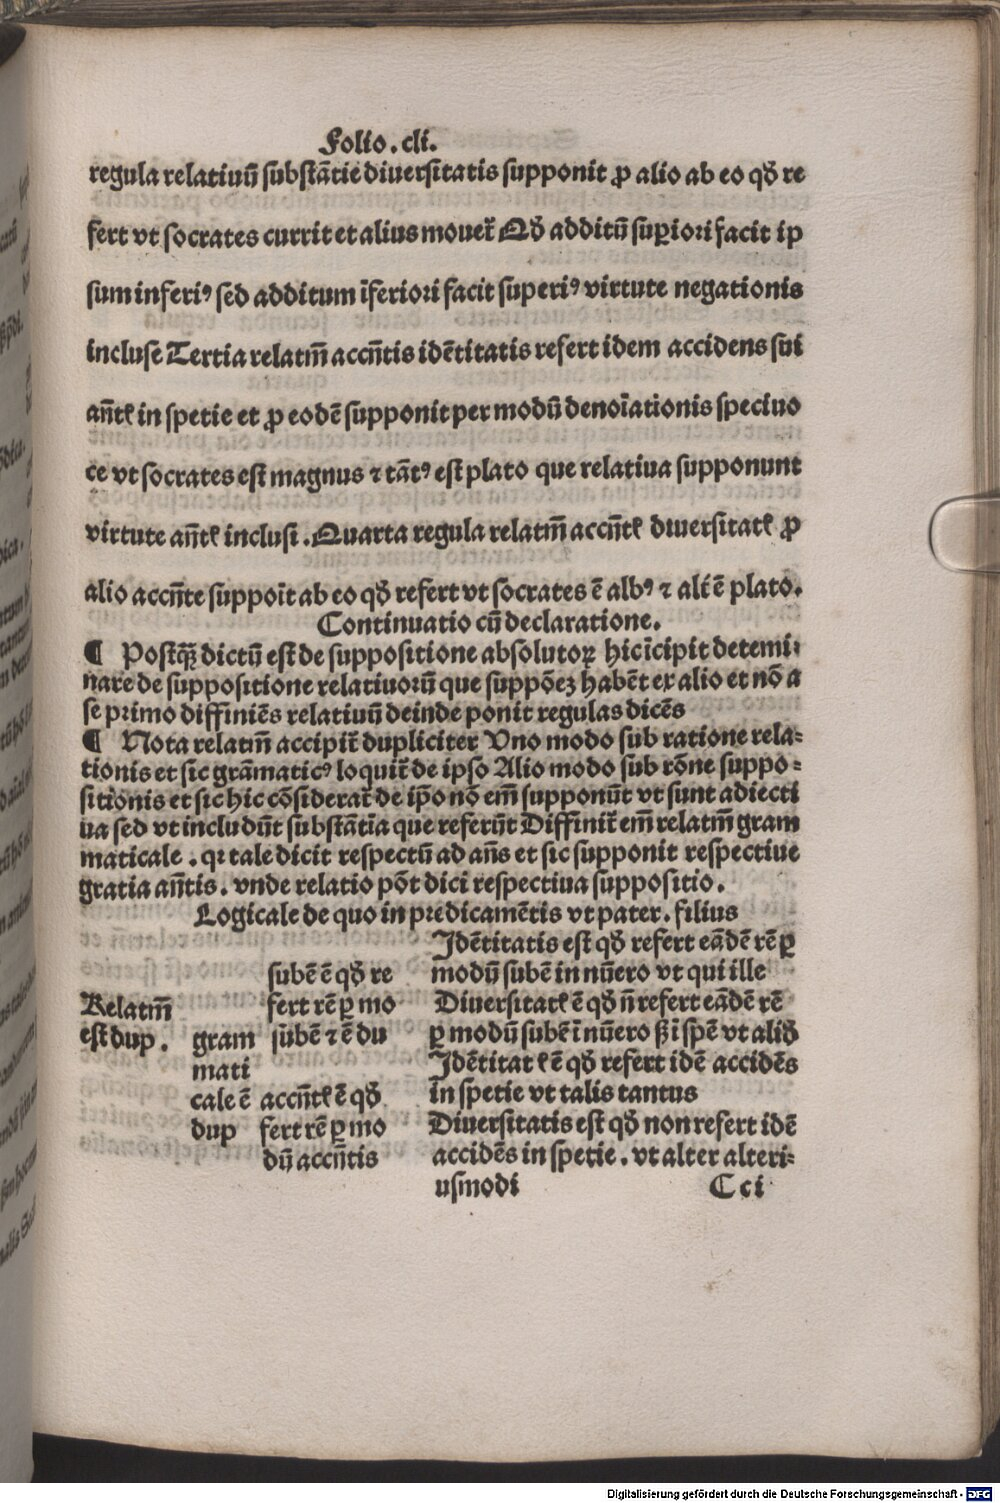 Folio. cli.
regula relatiuũ substãtie diuersitatis supponit ꝓ alio ab eo qđ re
fert vt socrates currit et alius mouet̃ Qđ additũ suꝑiori facit ip
sum inferiꝰ sed additum ĩferiori facit superiꝰ virtute negationis
incluse Tertia relatm̃ accñtis idẽtitatis refert idem accidens sui
añtꝭ in spetie et ꝓ eodẽ supponit per modũ denoĩationis speciuo
ce vt socrates est magnus ⁊ tãtꝰ est plato que relatiua supponunt
virtute añtꝭ inclusi. Quarta regula relatm̃ accñtꝭ diuersitatꝭ ꝓ
alio accñte suppoĩt ab eo qđ refert vt socrates ẽ albꝰ ⁊ aliꝰ ẽ plato.
Continuatio cũ declaratione.
¶ Postq̃ꝫ dictũ est de suppositione absolutoꝝ hic ĩcipit detemi-
nare de suppositione relatiuorũ que suppõeꝫ habẽt ex alio et nõ a
se primo diffiniẽs relatiuũ deinde ponit regulas dicẽs
¶ Nota relatm̃ accipit̃ dupliciter Uno modo sub ratione rela-
tionis et sic grãmaticꝰ loquit̃ de ipso Alio modo sub rõne suppo-
sitionis et sic hic cõsiderat̃ de ip̃o nõ em̃ supponũt vt sunt adiecti
ua sed vt includũt substãtĩa que referũt Diffinit̃ em̃ relatm̃ gram
maticale. qꝛ tale dicit respectũ ad añs et sic supponit respectiue
gratia añtis. vnde relatio põt dici respectiua suppositio.
Logicale de quo in predicamẽtis vt pater. filius
Relatm̃
est dup.
gram
mati
cale ẽ
dup
subẽ ẽ qđ re
fert rẽ ꝑ mo
dũ subẽ ⁊ ẽ du
accñtꝭ ẽ qđ
fert rẽ ꝑ mo
dũ accñtis
Idẽtitatis est qđ refert eãdẽ rẽ ꝑ
modũ subẽ in nũero vt qui ille
Diuersitatꝭ ẽ qđ ñ refert eãdẽ rẽ
ꝑ modũ subẽ ĩ nũero ꝭ ĩ spẽ vt aliđ
Idẽtitatꝭ ẽ qđ refert idẽ accidẽs
in spetie vt talis tantus
Diuersitatis est qđ non refert idẽ
accidẽs in spetie. vt alter alteri-
usmodi
Cci
Digitalisierung gefördert durch die Deutsche Forschungsgemeinschaft - DFG